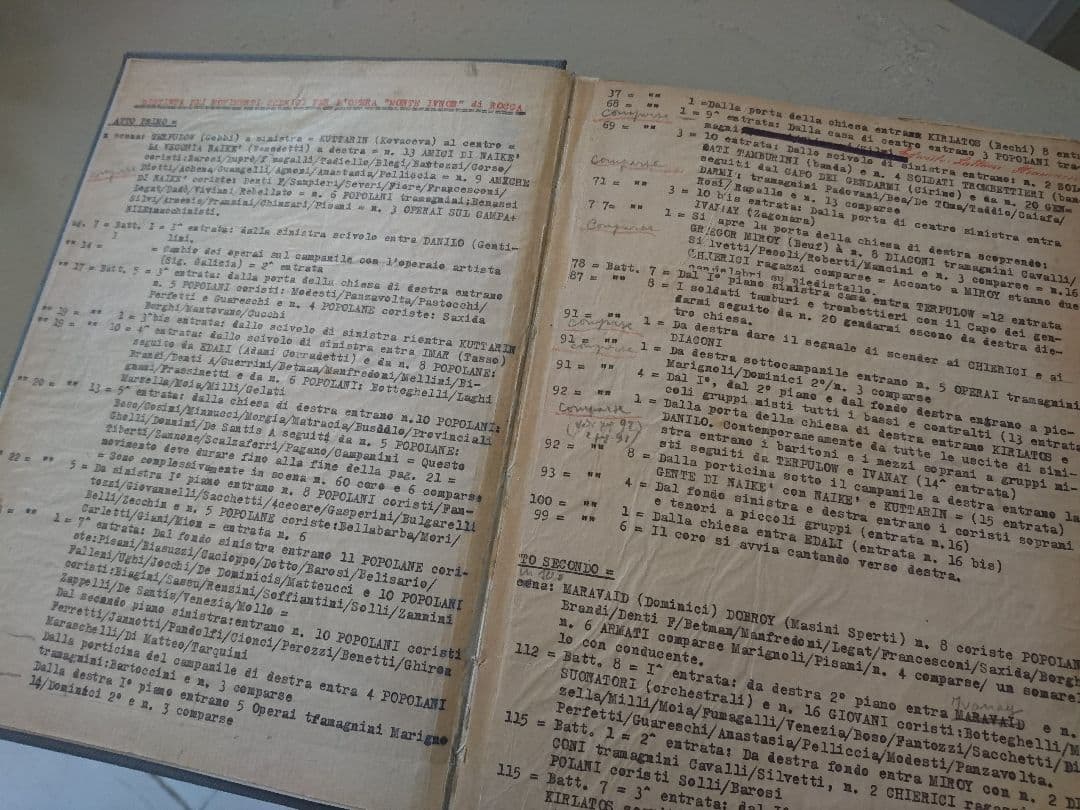 DISTINTA DEI MOVIMENTI SCENICI PER L'OPERA "MONTE IVNOR" di ROCCA
ATTO PRIMO =
n scena: TERPULOW (Gobbi) a sinistra = KUTTARIN (Kovaceva) al centro =
LA VECCHIA NAIKE' (Benedetti) a destra = n. 13 AMICI DI NAIKE'
coristi:Barosi/Dupre/F magalli/Tadiello/Blegi/Fantozzi/Corso/
Piotti/Achena/Guangelli/Agnoni/Anastasia/Pelliccia = n. 9 AMICHE
DI NAIKE' coriste: Denti F/Sampieri/Severi/Fiore/Francesconi/
Legat/Dadò/Viviani/Rebellato = n. 6 POPOLANI tramagnini:Benassi
Silvi/Armenia/Frannini/Chinzari/Pisani = n. 3 OPERAI SUL CAMPA+
NILE:macchinisti.
7 = Batt. I = I^ entrata: dalla sinistra scivolo entra DANILO (Genti-
lini,
"" 14 = 1 = Cambio dei operai sul campanile con l'operaio artista
(Sig. Galicia) = 2^ entrata
"" 17 = Batt. 5 = 3^ entrata: dalla porta della chiesa di destra entrano
n. 5 POPOLANI coristi: Modesti/Panzavolta/Pastocchi/
Perfetti e Guareschi e n. 4 POPOLANE coriste: Saxida
Borghi/Mantovano/Cucchi
"" 19 = "" 1 = 3^bis entrata: dallo scivolo di sinistra rientra KUTTARIN
"" 19 = "" 10 = 4^ entrata: dallo scivolo di sinistra entra IMAR (Tasso)
seguito da EDALI (Adami Corradetti) e da n. 8 POPOLANE:
Brandi/Denti A/Guerrini/Betman/Manfredoni/Mellini/Bi-
gnami/Frassinetti e da n. 6 POPOLANI: Botteghelli/Laghi
Marzella/Moia/Milli/Gelati
"" 20 = "" 13 = 5^ entrata: dalla chiesa di destra entrano n.10 POPOLANI:
Boso/Cosimi/Minnucci/Morgia/Matracia/Busddlo/Provinciali
Ghelli/Donnini/De Santis A seguiti da n. 5 POPOLANE:
Tiberti/Zannone/Scalzaferri/Pagano/Campanini = Questo
movimento deve durare fino alla fine della pag. 21 =
= Sono complessivamente in scena n. 60 coro e 6 comparse
22 = "" 5 = Da sinistra I° piano entrano n. 8 POPOLANI coristi/Fan-
tozzi/Giovannelli/Sacchetti/4cecere/Gasperini/Bulgarelli
Belli/Zecchin e n. 5 POPOLANE coriste:Bellabarba/Mori/
Carletti/Giani/Mion = entrata n. 6
= "" 1 = 7^ entrata: Dal fondo sinistra entrano 11 POPOLANE cori-
ste:Pisani/Biasuzzi/Cacioppo/Dotto/Barosi/Belisario/
Falleni/Ughi/Jocchi/De Dominicis/Matteucci e 10 POPOLANI
coristi:Biagini/Sassu/Renzini/Soffiantini/Solli/Zannini
Zappelli/De Santis/Venezia/Mollo =
Dal secondo piano sinistra:entrano n. 10 POPOLANI coristi
Ferretti/Jannotti/Pandolfi/Cionci/Perozzi/Benetti/Ghiron
Maraschelli/Di Matteo/Tarquini
Dalla porticina del campanile di destra entra 4 POPOLANI
tramagnini:Bartoccini e n. 3 comparse
Dalla destra I° piano entrano 5 Operai tramagnini Marigno
14/Dominici 2° e n. 3 comparse
37 = "" 1 =Dalla porta della chiesa entrano KIRLATOS (Bechi) 8 entra
68 = "" 1 = 9^ entrata: Dalla casa di centro entrano 3 POPOLANI tra
Comparse magnini
69 = "" 3 = 10 entrata: Dallo scivolo di sinistra entrano: n. 2 SOL
DATI TAMBURINI (banda) e n. 4 SOLDATI TROMBETTIERI (ban
seguiti dal CAPO DEI GENDARMI (Cirino) e da n. 20 GEN-
Comparse DARMI; tramagnini Padovani/Bea/De Toma/Taddio/Calafa/
Rosi/Rupalle e n. 13 comparse
71 = "" 3 = 10 bis entrata: Dalla porta di centro sinistra entra
IVANAY (Zagonara)
7 7= "" 1 = Si apre la porta della chiesa di destra scoprendo:
Comparse GREGOR MIROY (Beuf) à n. 8 DIACONI tramagnini Cavalli/
Silvetti/Pesoli/Roberti/Mancini e n. 3 comparse = n.16
CHIERICI ragazzi comparse = Acconto a MIROY stanno due
candelabri su piedistallo.
78 = Batt. 7 = Dal I° piano sinistra casa entra TERPULOW =12 entrata
87 = "" 8 = I soldati tamburi e trombettieri con il Capo dei gen-
darmi seguito da n. 20 gendarmi escono da destra die-
tro chiesa.
91 = "" 1 = Da destra dare il segnale di scender ai CHIERICI e ai
Comparse DIACONI
91 = "" 1 = Da destra sottocampanile entrano n. 5 OPERAI tramagnini
Comparse Marignoli/Dominici 2°/n. 3 comparse
91 = "" 4 = Dal I°, dal 2° piano e dal fondo destra entrano a pic-
coli gruppi misti tutti i bassi e contralti (13 entrata
92 = "" 1 = Dalla porta della chiesa di destra entrano KIRLATOS e
Comparse DANILO. Contemporaneamente da tutte le uscite di sini-
(vedi pag 92) stra entrano i baritoni e i mezzi soprani a gruppi mi-
sti seguiti da TERPULOW e IVANAY (14^ entrata)
92 = "" 8 = Dalla porticina sotto il campanile a destra entrano la
GENTE DI NAIKE' con NAIKE' e KUTTARIN = (15 entrata)
93 = "" 4 = Dal fondo sinistra e destra entrano i coristi soprani
e tenori a piccoli gruppi (entrata n.16)
100 = "" 1 = Dalla chiesa entra EDALI (entrata n. 16 bis)
99 = "" 6 = Il coro si avvia cantando verso destra.
TO SECONDO =
cena: MARAVAID (Dominici) DOBROY (Masini Sperti) n. 8 coriste POPOLAN
Brandi/Denti F/Betman/Manfredoni/Legat/Francesconi/Saxida/Borgh
n. 6 ARMATI comparse Marignoli/Pisani/n. 4 comparse/ un somarel
lo con conducente.
112 = Batt. 8 = I^ entrata: da destra 2° piano entra MARAVAID e n.
Ivanay
SUONATORI (orchestrali) e n. 16 GIOVANI coristi:Botteghelli/M
zella/Milli/Moia/Fumagalli/Venezia/Boso/Fantozzi/Sacchetti/Bi
Perfetti/Guareschi/Anastasia/Pelliccia/Modesti/Panzavolta.
115 = Batt. 1 = 2^ entrata: Da destra fondo entra MIROY con n. 2 D
CONI tramagnini Cavalli/Silvetti, n. 2 CHIERICI
POLANI coristi Solli/Barosi
115 = Batt. 7 = 3^ entrata: dal
KIRLATOS